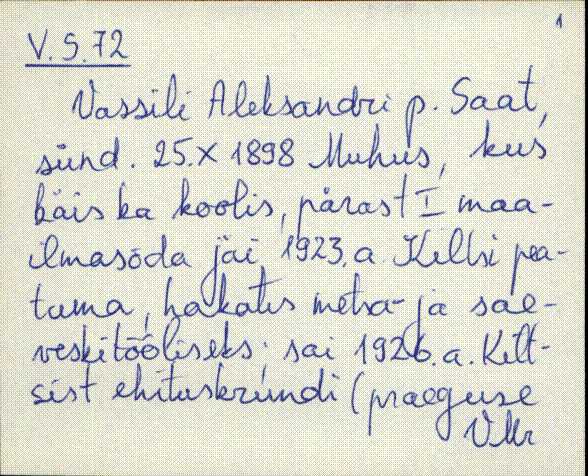 1
V.S.72
Vassili Aleksandri p. Saat,
sünd. 25.X 1898 Muhus, kus
käis ka koolis, pärast I maa-
ilmasõda jäi 1923.a. Kiltsi pea-
tuma, hakates metsa- ja sae-
veskitööliseks; sai 1926.a. Kilt-
sist ehituskrundi (praeguse